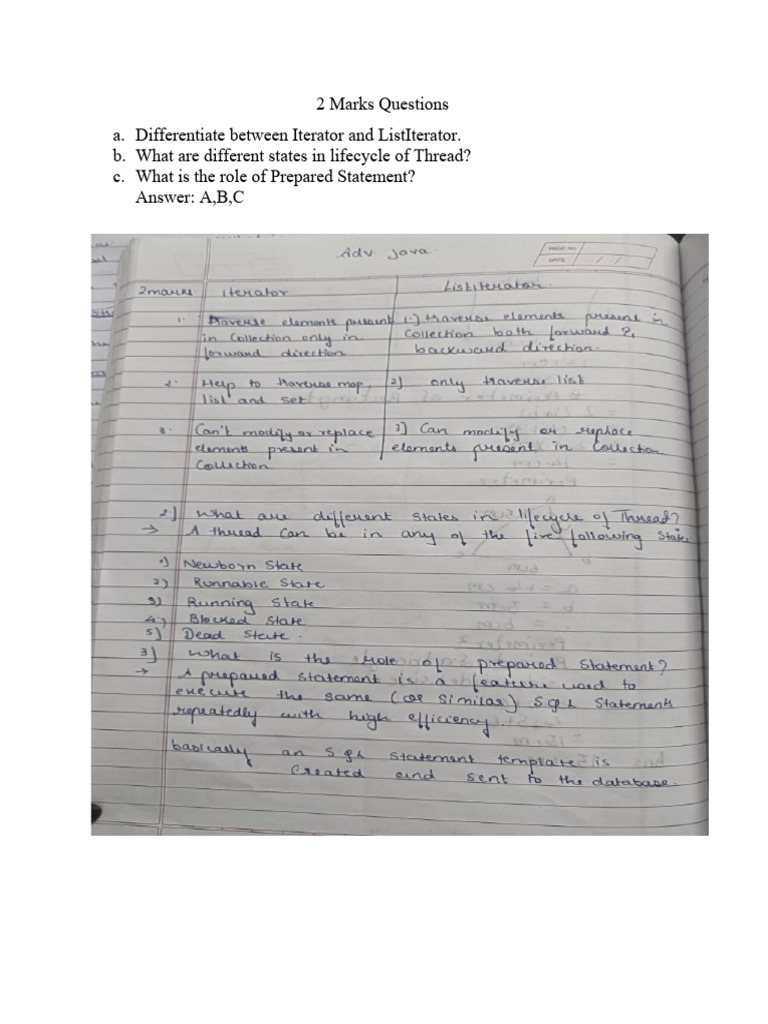 2 Marks Questions
a. Differentiate between Iterator and ListIterator.
b. What are different states in lifecycle of Thread?
c. What is the role of Prepared Statement?
Answer: A,B,C
Adv. Java.
PAGE NO.
DATE / /
2marks Iterator ListIterator.
1. Traverse elements present 1.) traverse elements present in
in Collection only in Collection both forward &
forward direction backward direction.
2. Help to traverse map, 2) only traverse list
list and set
3. Can't modify or replace 3) Can modify or replace
elements present in elements present in Collection
Collection
2] What are different states in lifecycle of Thread?
→ A thread can be in any of the five following State
1) Newborn State
2) Runnable State
3) Running State
4) Blocked State
5) Dead State.
3] What is the role of prepared Statement?
→ A prepared statement is a feature used to
execute the same (or similar) SQL Statements
repeatedly with high efficiency
basically an SQL statement template is
Created and sent to the database.